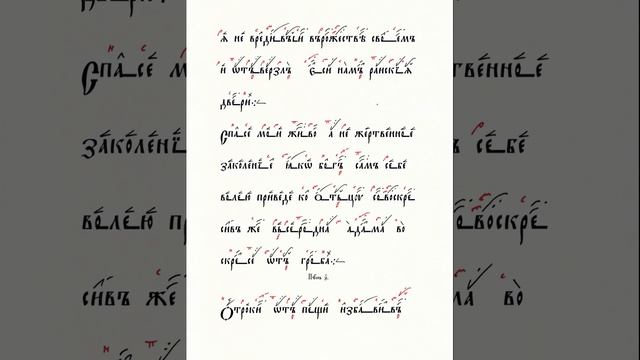 ꙗ҆ не вредивъıй въ рожествѣ своемъ
и҆ ѿтъверзлъ Е҆си намъ раискиꙗ
двери҃:
Спасе мои живо а не жертвенное
заколение ꙗкѡ богъ самъ себе
волею приведе ко Отьцꙋ совоскре
сивъ же вьсеродна адама во
скресе ѿтъ гроба:
Пѣснь з҃.
Отроки ѿтъ пещи избавивъ